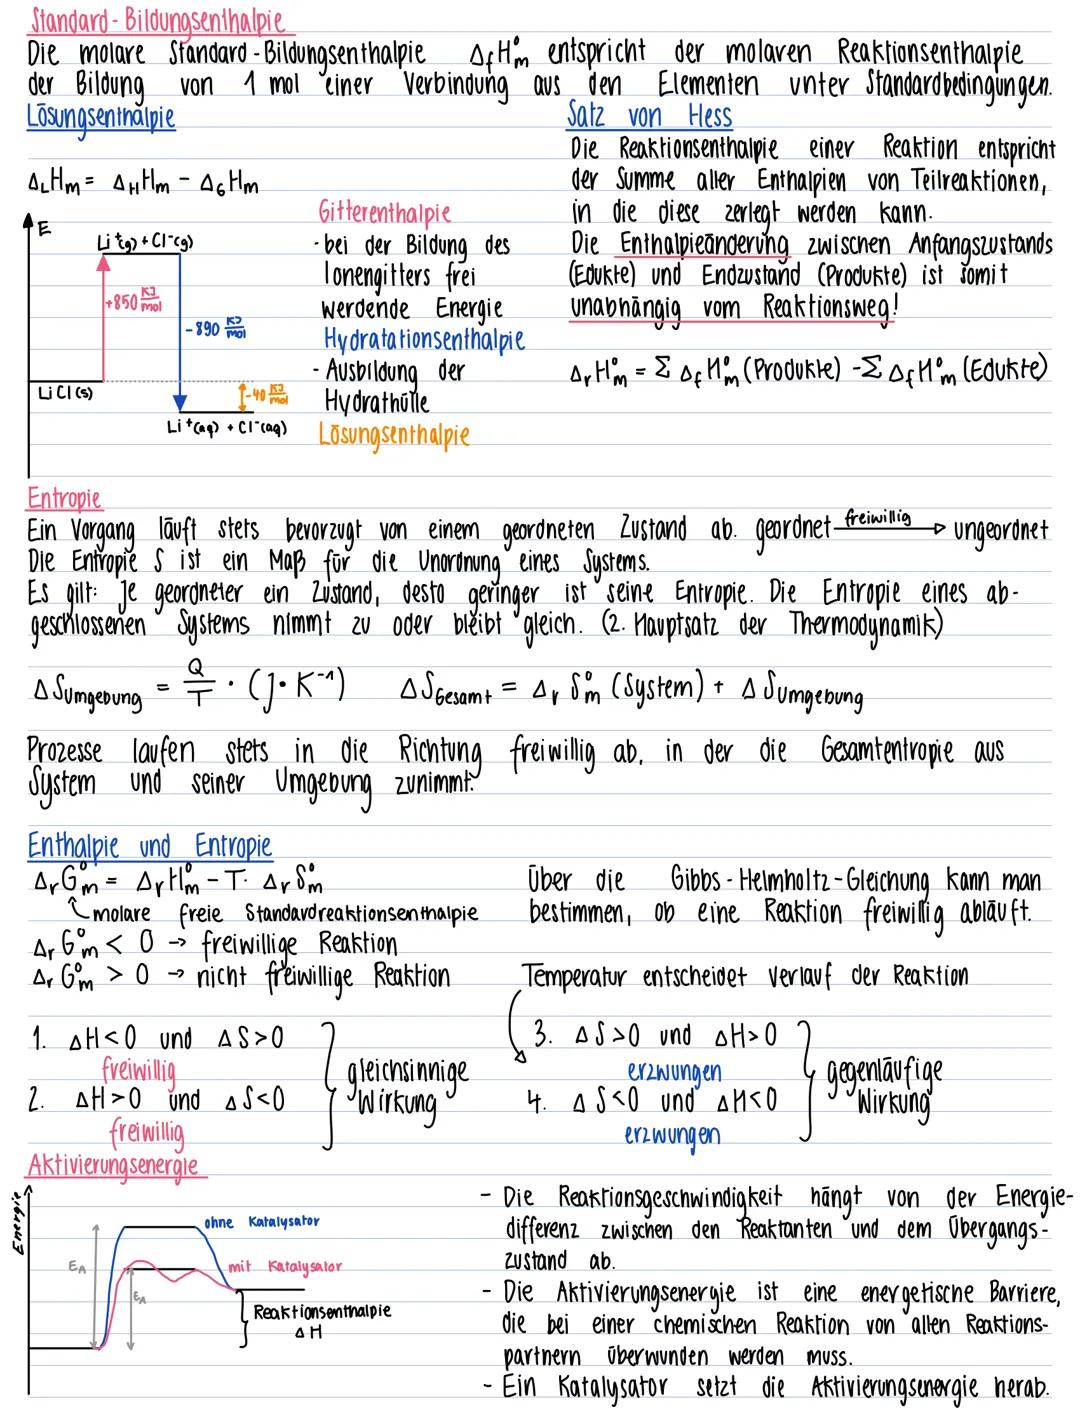 Standard-Bildungsenthalpie
Die molare Standard-Bildungsenthalpie ΔfH°m entspricht der molaren Reaktionsenthalpie
der Bildung von 1 mol einer Verbindung aus den Elementen unter Standardbedingungen.
Lösungsenthalpie
ΔLHm = ΔHHm - ΔGHm
E
Li⁺(g) + Cl⁻(g)
+850 KJ/mol
-890 KJ/mol
LiCl(s)
-40 KJ/mol
Li⁺(aq) + Cl⁻(aq)
Gitterenthalpie
- bei der Bildung des
Ionengitters frei
werdende Energie
Hydratationsenthalpie
- Ausbildung der
Hydrathülle
Lösungsenthalpie
Satz von Hess
Die Reaktionsenthalpie einer Reaktion entspricht
der Summe aller Enthalpien von Teilreaktionen,
in die diese zerlegt werden kann.
Die Enthalpieänderung zwischen Anfangszustands
(Edukte) und Endzustand (Produkte) ist somit
unabhängig vom Reaktionsweg!
ΔrH°m = Σ ΔfH°m (Produkte) - Σ ΔfH°m (Edukte)
Entropie
Ein Vorgang läuft stets bevorzugt von einem geordneten Zustand ab. geordnet freiwillig → ungeordnet
Die Entropie S ist ein Maß für die Unordnung eines Systems.
Es gilt: Je geordneter ein Zustand, desto geringer ist seine Entropie. Die Entropie eines ab-
geschlossenen Systems nimmt zu oder bleibt gleich. (2. Hauptsatz der Thermodynamik)
ΔSUmgebung = Q/T · (J · K⁻¹) ΔSGesamt = ΔrS°m (System) + ΔSUmgebung
Prozesse laufen stets in die Richtung freiwillig ab, in der die Gesamtentropie aus
System und seiner Umgebung zunimmt.
Enthalpie und Entropie
ΔrG°m = ΔrH°m - T · ΔrS°m
molare freie Standardreaktionsenthalpie
ΔrG°m < 0 → freiwillige Reaktion
ΔrG°m > 0 → nicht freiwillige Reaktion
Über die Gibbs-Helmholtz-Gleichung kann man
bestimmen, ob eine Reaktion freiwillig abläuft.
Temperatur entscheidet Verlauf der Reaktion
1. ΔH<0 und ΔS>0
freiwillig
2. ΔH>0 und ΔS<0
freiwillig
gleichsinnige
Wirkung
3. ΔS>0 und ΔH>0
erzwungen
4. ΔS<0 und ΔH<0
erzwungen
gegenläufige
Wirkung
Aktivierungsenergie
Energie
ohne Katalysator
EA
mit Katalysator
EA
Reaktionsenthalpie
ΔH
- Die Reaktionsgeschwindigkeit hängt von der Energie-
differenz zwischen den Reaktanten und dem Übergangs-
zustand ab.
- Die Aktivierungsenergie ist eine energetische Barriere,
die bei einer chemischen Reaktion von allen Reaktions-
partnern überwunden werden muss.
- Ein Katalysator setzt die Aktivierungsenergie herab.